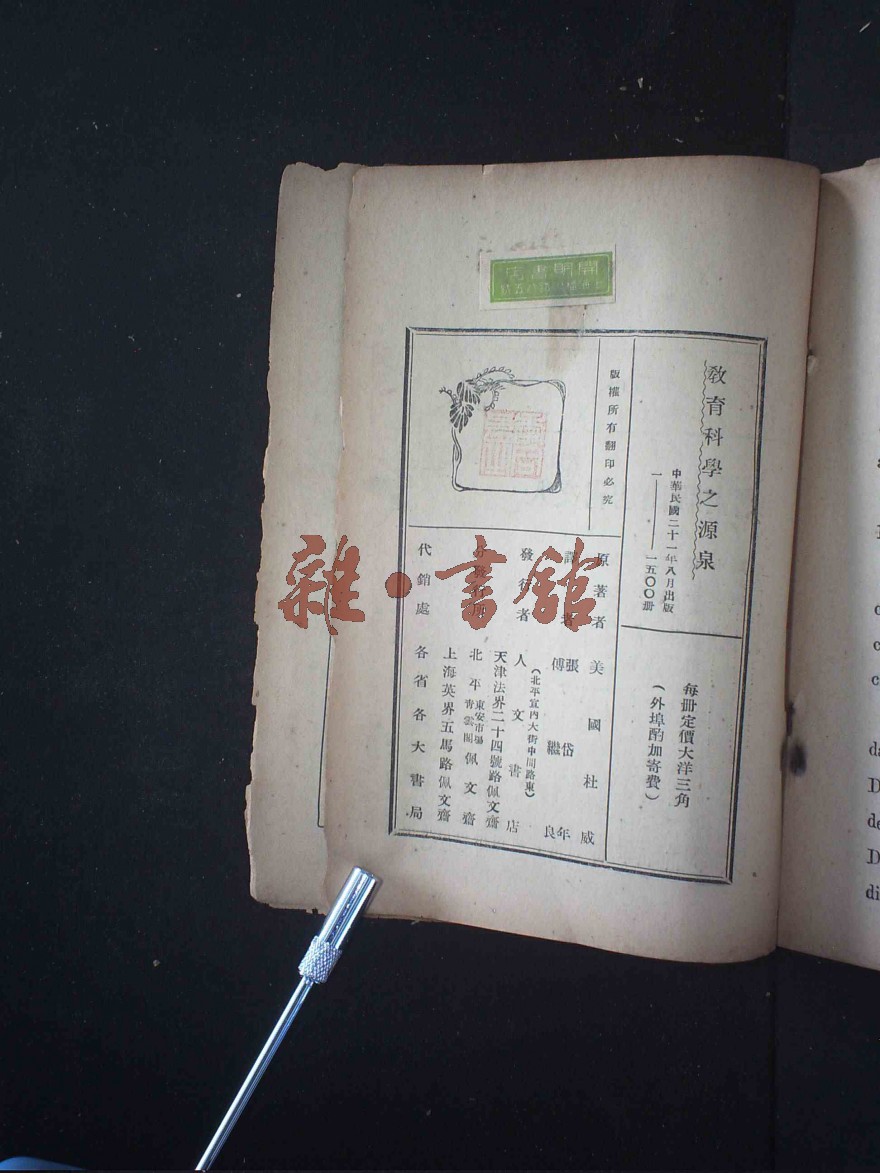 開明書店
教育科學之源泉
中華民國二十一年八月出版
一——一五〇〇册
每册定價大洋三角
(外埠酌加寄費)
版權所有翻印必究
原著者 美國杜威
譯者 張岱年 傅繼良
發行者 人文書店
(北平宣內大街中間路東)
天津法界二十四號路佩文齋
北平東安市場青雲閣佩文齋
上海英界五馬路佩文齋
代銷處 各省各大書局
雜·書館